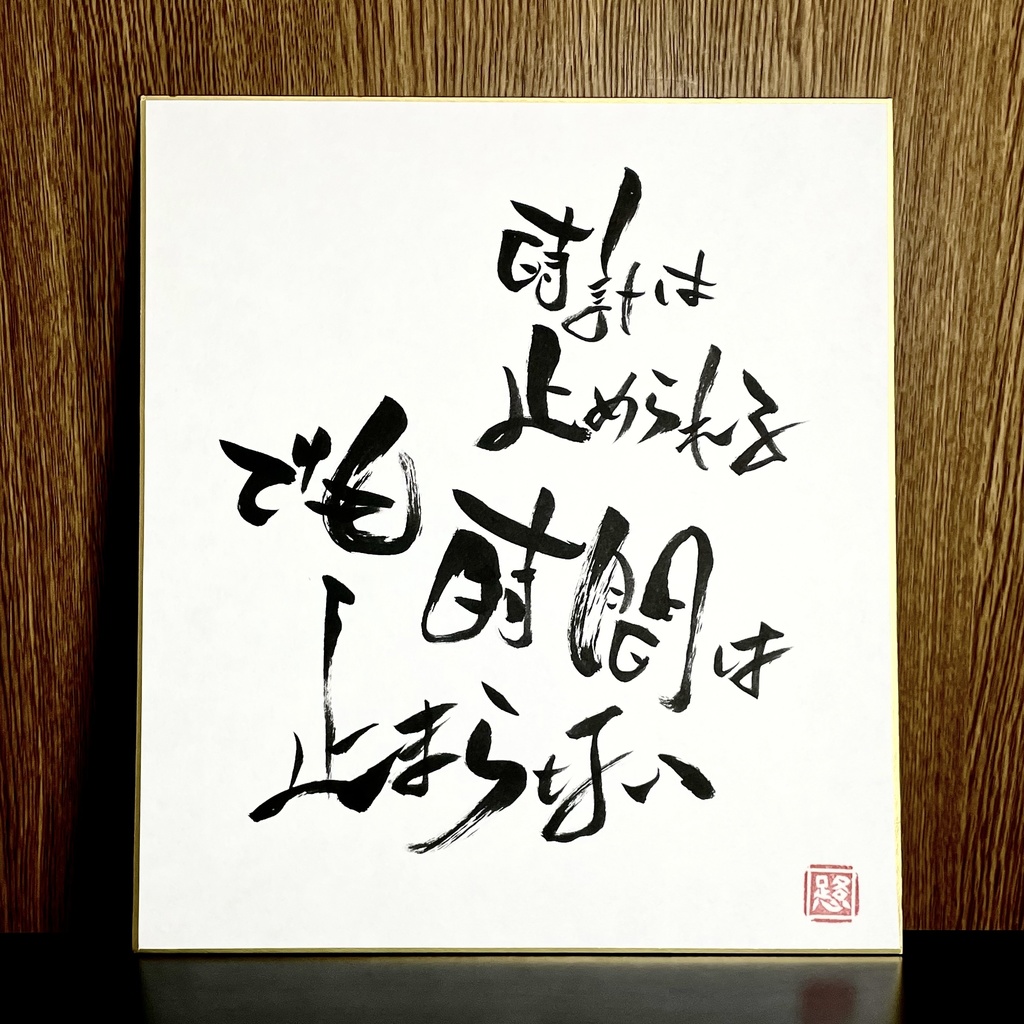 時計は
止められる
でも
時間は
止まらない